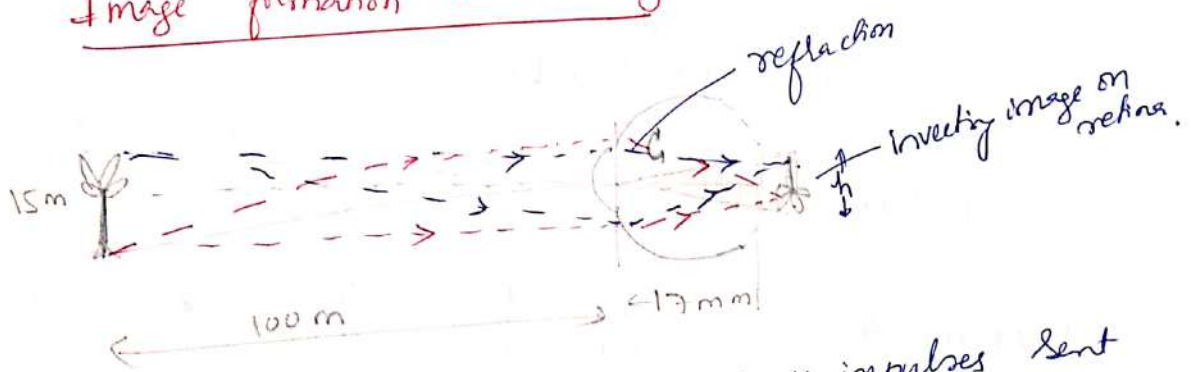 Image formation
refraction
inverting image on
retina.
15m
h
17mm
100m
impulses sent